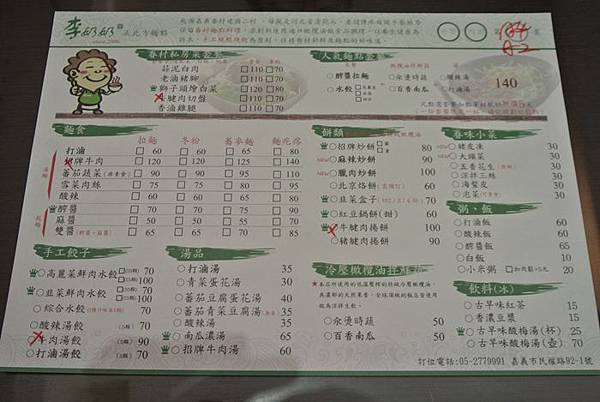 李奶奶
正北方麵點
眷村私房菜套餐
蒜泥白肉 □110 □70
老滷豬腳 □110 □70
獅子頭燴白菜 □120 □70
牛腱肉切盤 □110 □70
香滷雞腿 □110 □70
人氣麵點套餐
○醡醬拉麵 ○汆燙時蔬 ○酸辣湯
○水餃 ○百香南瓜 ○打滷湯
140
麵食
拉麵 冬粉 蕎麥麵 麵疙瘩
打滷 □60 □60 □65 □80
招牌牛肉 □120 □120 □125 □140
番茄蔬菜 □75 □75 □80 □95
雪菜肉絲 □75 □75 □80 □95
酸辣 □65 □65 □70 □85
醡醬 □70 □75 □90
麻醬 □50 □55 □70
雙醬 □65 □70 □85
餅類
○招牌炒餅 □80
○麻辣炒餅 90
○臘肉炒餅 100
○北京烙餅 30
○韭菜盒子 60
○紅豆鍋餅(甜) 60
○牛腱肉捲餅 100
○豬腱肉捲餅 90
眷味小菜
○豬皮凍 30
○大頭菜 30
○五香花生 30
○涼拌三絲 30
○海蜇皮 30
○泡菜 30
粥、飯
○打滷飯 60
○酸辣飯 60
○醡醬飯 65
○白飯 10
○小米粥 20
手工餃子
○高麗菜鮮肉水餃 70 100
○韭菜鮮肉水餃 70 100
○綜合水餃 70
○酸辣湯餃 70
○牛肉湯餃 90
○打滷湯餃 70
湯品
○打滷湯 35
○青菜蛋花湯 30
○蕃茄豆腐蛋花湯 40
○蕃茄青菜豆腐湯 35
○酸辣湯 35
○南瓜濃湯 65
○招牌牛肉湯 65
○汆燙時蔬 50
○百香南瓜 50
飲料(冰)
○古早味紅茶 15
○香濃豆漿 15
○古早味酸梅湯(杯) 25
○古早味酸梅湯(壺) 70
訂位電話:05-2779991 嘉義市民權路92-1號